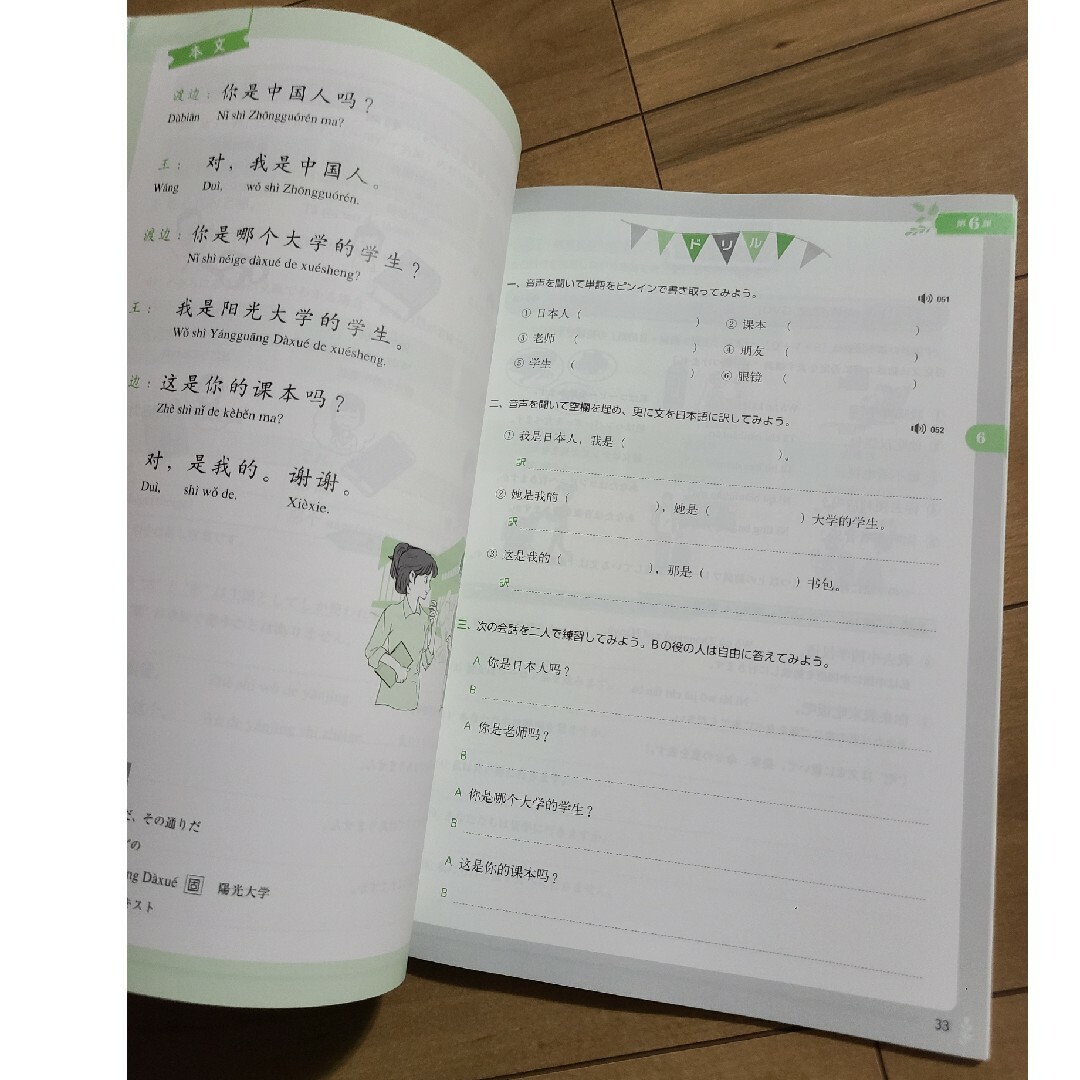 本文
渡边：你是中国人吗？
Dùbiān Nǐ shì Zhōngguórén ma?
王：对，我是中国人。
Wáng Duì, wǒ shì Zhōngguórén.
渡边：你是哪个大学的学生？
Nǐ shì něige dàxué de xuésheng?
王：我是阳光大学的学生。
Wǒ shì Yángguāng Dàxué de xuésheng.
边：这是你的课本吗？
Zhè shì nǐ de kèběn ma?
对，是我的。谢谢。
Duì, shì wǒ de. Xièxie.
、その通りだ
の
ng Dàxué 固 陽光大学
キスト
第6課
ドリル
一、音声を聞いて単語をピンインで書き取ってみよう。 051
① 日本人（ ） ② 课本（ ）
③ 老师（ ） ④ 朋友（ ）
⑤ 学生（ ） ⑥ 眼镜（ ）
二、音声を聞いて空欄を埋め、更に文を日本語に訳してみよう。 052
6
① 我是日本人，我是（ ）。
訳
② 她是我的（ ），她是（ ）大学的学生。
訳
③ 这是我的（ ），那是（ ）书包。
訳
三、次の会話を二人で練習してみよう。Bの役の人は自由に答えてみよう。
A 你是日本人吗？
B
A 你是老师吗？
B
A 你是哪个大学的学生？
B
A 这是你的课本吗？
B
33